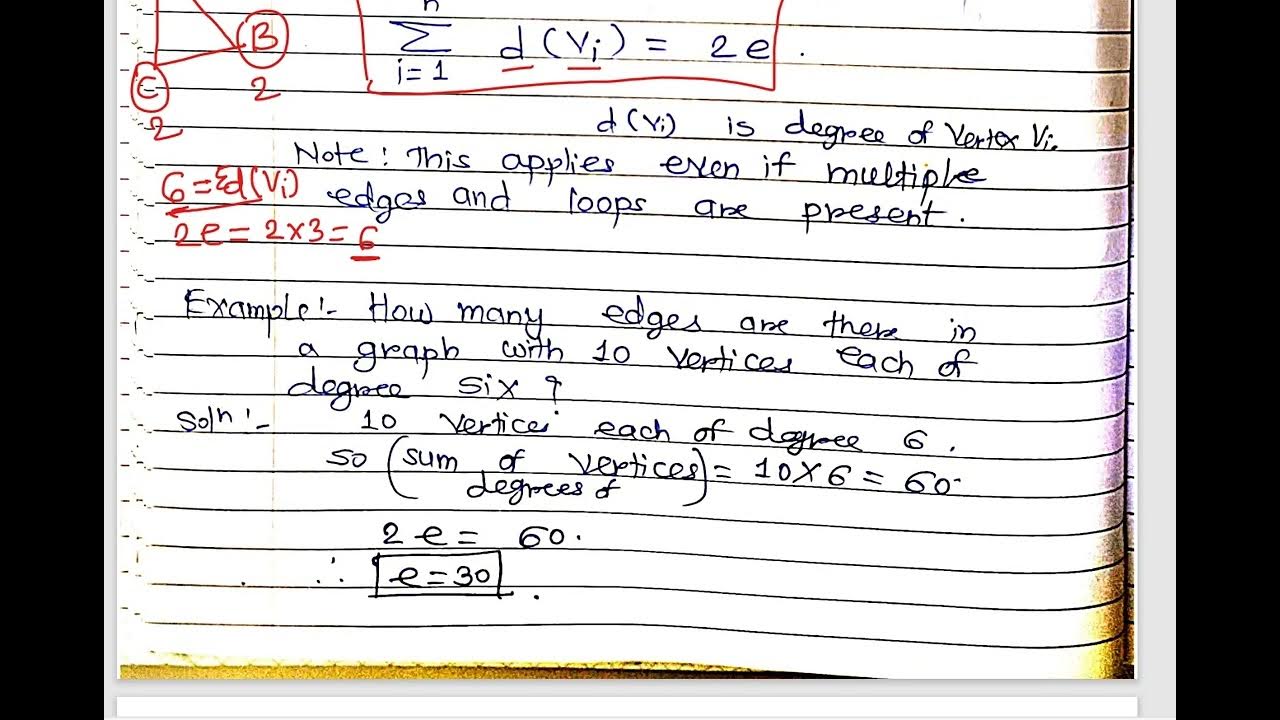 n
B
Σ d (Vi) = 2e .
i=1
C
2
2
d(Vi) is degree of Vertex Vi.
Note: This applies even if multiple
6 = Σd(Vi)
edges and loops are present.
2e = 2x3 = 6
Example:- How many edges are there in
a graph with 10 vertices each of
degree six ?
Soln:- 10 vertices each of degree 6 .
so (sum of vertices) = 10 X 6 = 60.
degrees of
2 e = 60.
∴ e = 30 .